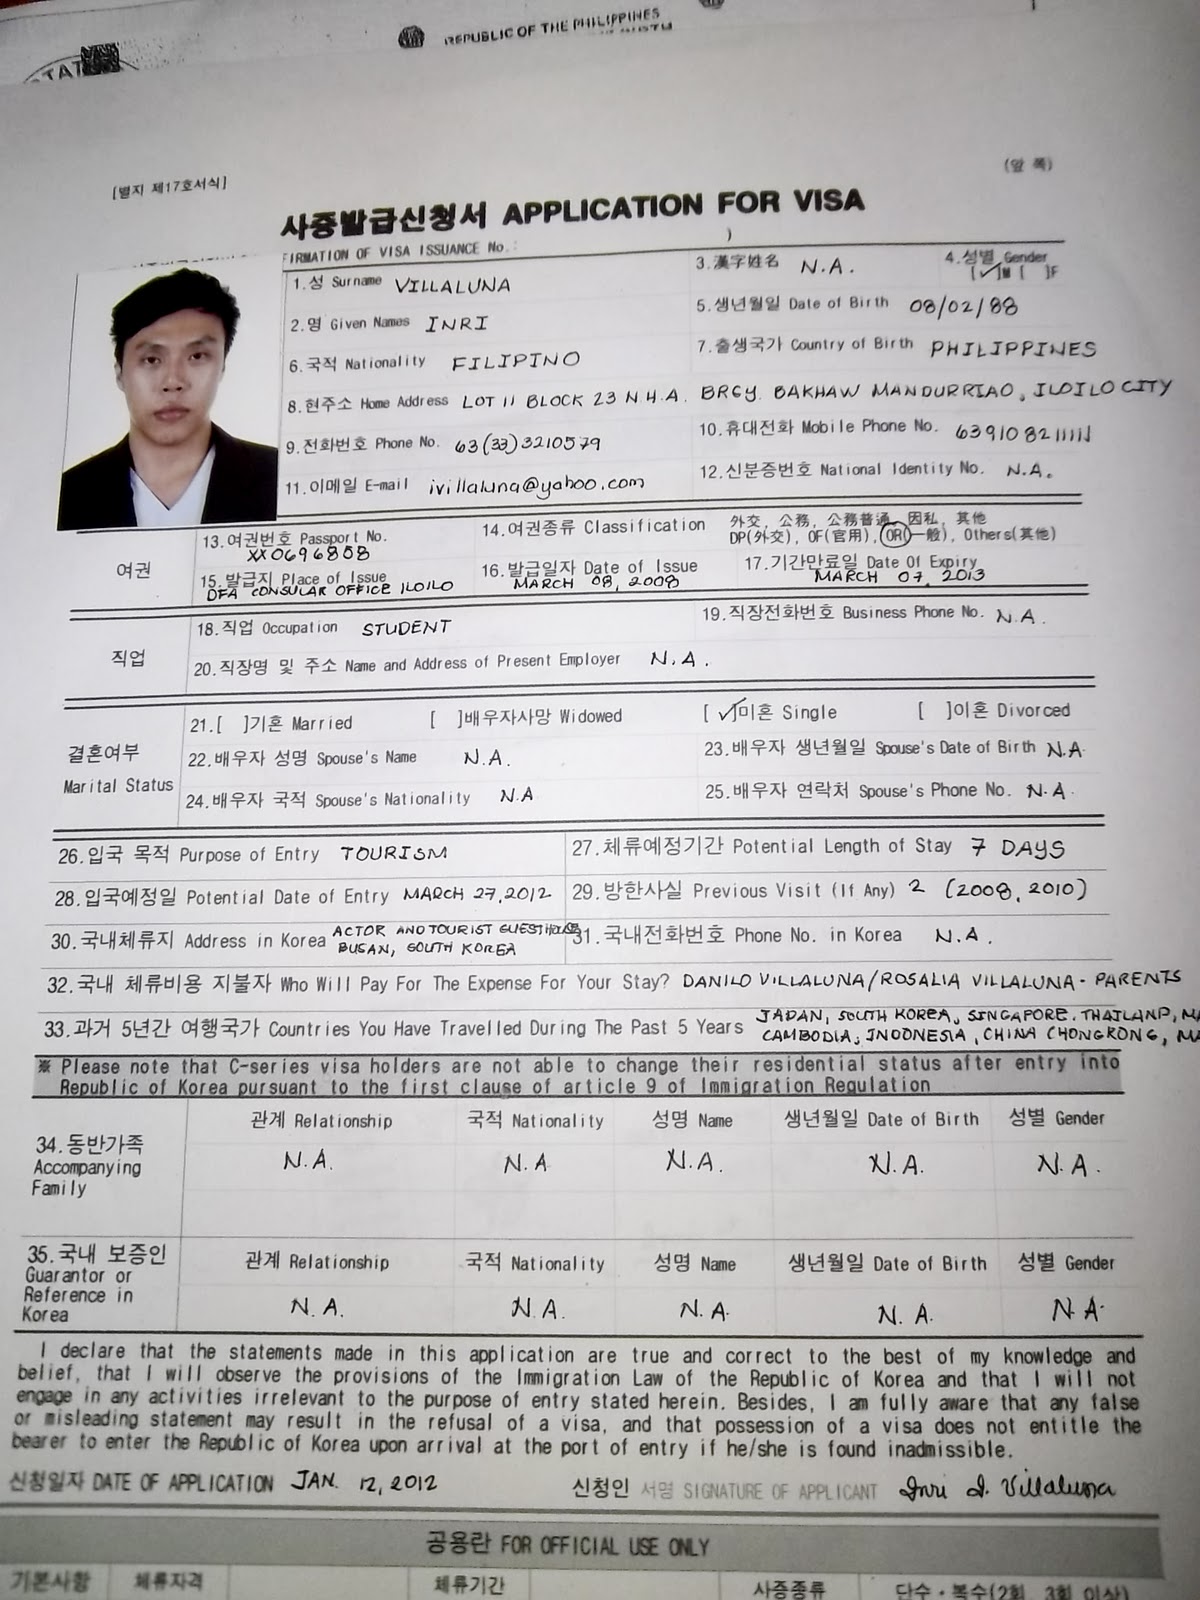 REPUBLIC OF THE PHILIPPINES
[별지 제17호서식]
(앞 쪽)
사증발급신청서 APPLICATION FOR VISA
FIRMATION OF VISA ISSUANCE No.: )
1.성 Surname VILLALUNA
3.漢字姓名 N.A.
4.성별 Gender
[✓]M [ ]F
2.명 Given Names INRI
5.생년월일 Date of Birth 08/02/88
6.국적 Nationality FILIPINO
7.출생국가 Country of Birth PHILIPPINES
8.현주소 Home Address LOT 11 BLOCK 23 N.H.A. BRGY. BAKHAW MANDURRIAO, ILOILO CITY
9.전화번호 Phone No. 63(33)3210579
10.휴대전화 Mobile Phone No. 639108211111
11.이메일 E-mail ivillaluna@yahoo.com
12.신분증번호 National Identity No. N.A.
여권
13.여권번호 Passport No.
XX0696858
14.여권종류 Classification
外交, 公務, 公務普通, 因私, 其他
DP(外交), OF(官用), OR(一般), Others(其他)
15.발급지 Place of Issue
DFA CONSULAR OFFICE ILOILO
16.발급일자 Date of Issue
MARCH 08, 2008
17.기간만료일 Date Of Expiry
MARCH 07, 2013
직업
18.직업 Occupation STUDENT
19.직장전화번호 Business Phone No. N.A.
20.직장명 및 주소 Name and Address of Present Employer N.A.
결혼여부
Marital Status
21.[ ]기혼 Married [ ]배우자사망 Widowed [✓]미혼 Single [ ]이혼 Divorced
22.배우자 성명 Spouse's Name N.A.
23.배우자 생년월일 Spouse's Date of Birth N.A.
24.배우자 국적 Spouse's Nationality N.A
25.배우자 연락처 Spouse's Phone No. N.A.
26.입국 목적 Purpose of Entry TOURISM
27.체류예정기간 Potential Length of Stay 7 DAYS
28.입국예정일 Potential Date of Entry MARCH 27, 2012
29.방한사실 Previous Visit (If Any) 2 (2008, 2010)
30.국내체류지 Address in Korea ACTOR AND TOURIST GUESTHOUSE
BUSAN, SOUTH KOREA
31.국내전화번호 Phone No. in Korea N.A.
32.국내 체류비용 지불자 Who Will Pay For The Expense For Your Stay? DANILO VILLALUNA/ROSALIA VILLALUNA - PARENTS
33.과거 5년간 여행국가 Countries You Have Travelled During The Past 5 Years JAPAN, SOUTH KOREA, SINGAPORE, THAILAND, MA
CAMBODIA, INDONESIA, CHINA (HONGKONG, MA
※ Please note that C-series visa holders are not able to change their residential status after entry into
Republic of Korea pursuant to the first clause of article 9 of Immigration Regulation
34.동반가족
Accompanying
Family
관계 Relationship 국적 Nationality 성명 Name 생년월일 Date of Birth 성별 Gender
N.A. N.A N.A. N.A. N.A.
35.국내 보증인
Guarantor or
Reference in
Korea
관계 Relationship 국적 Nationality 성명 Name 생년월일 Date of Birth 성별 Gender
N.A. N.A. N.A. N.A. N.A.
I declare that the statements made in this application are true and correct to the best of my knowledge and
belief, that I will observe the provisions of the Immigration Law of the Republic of Korea and that I will not
engage in any activities irrelevant to the purpose of entry stated herein. Besides, I am fully aware that any false
or misleading statement may result in the refusal of a visa, and that possession of a visa does not entitle the
bearer to enter the Republic of Korea upon arrival at the port of entry if he/she is found inadmissible.
신청일자 DATE OF APPLICATION JAN. 12, 2012
신청인 서명 SIGNATURE OF APPLICANT Inri I. Villaluna
공용란 FOR OFFICIAL USE ONLY
기본사항 체류자격 체류기간 사증종류 단수·복수(2회, 3회 이상)